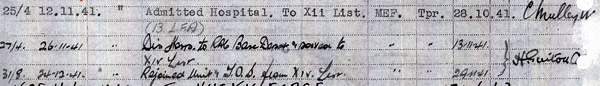 25/4 12.11.41. " Admitted Hospital. To Xii List. MEF. Tpr. 28.10.41. C Mulleyer
(13 LFA)
27/4. 26-11-41 " Dis Hosp. to Base Depot & to " " 13-11-41
Xiv List.
31/8 24-12-41. " Rejoined Unit & T.O.S. from Xiv. List. " " 29-11-41